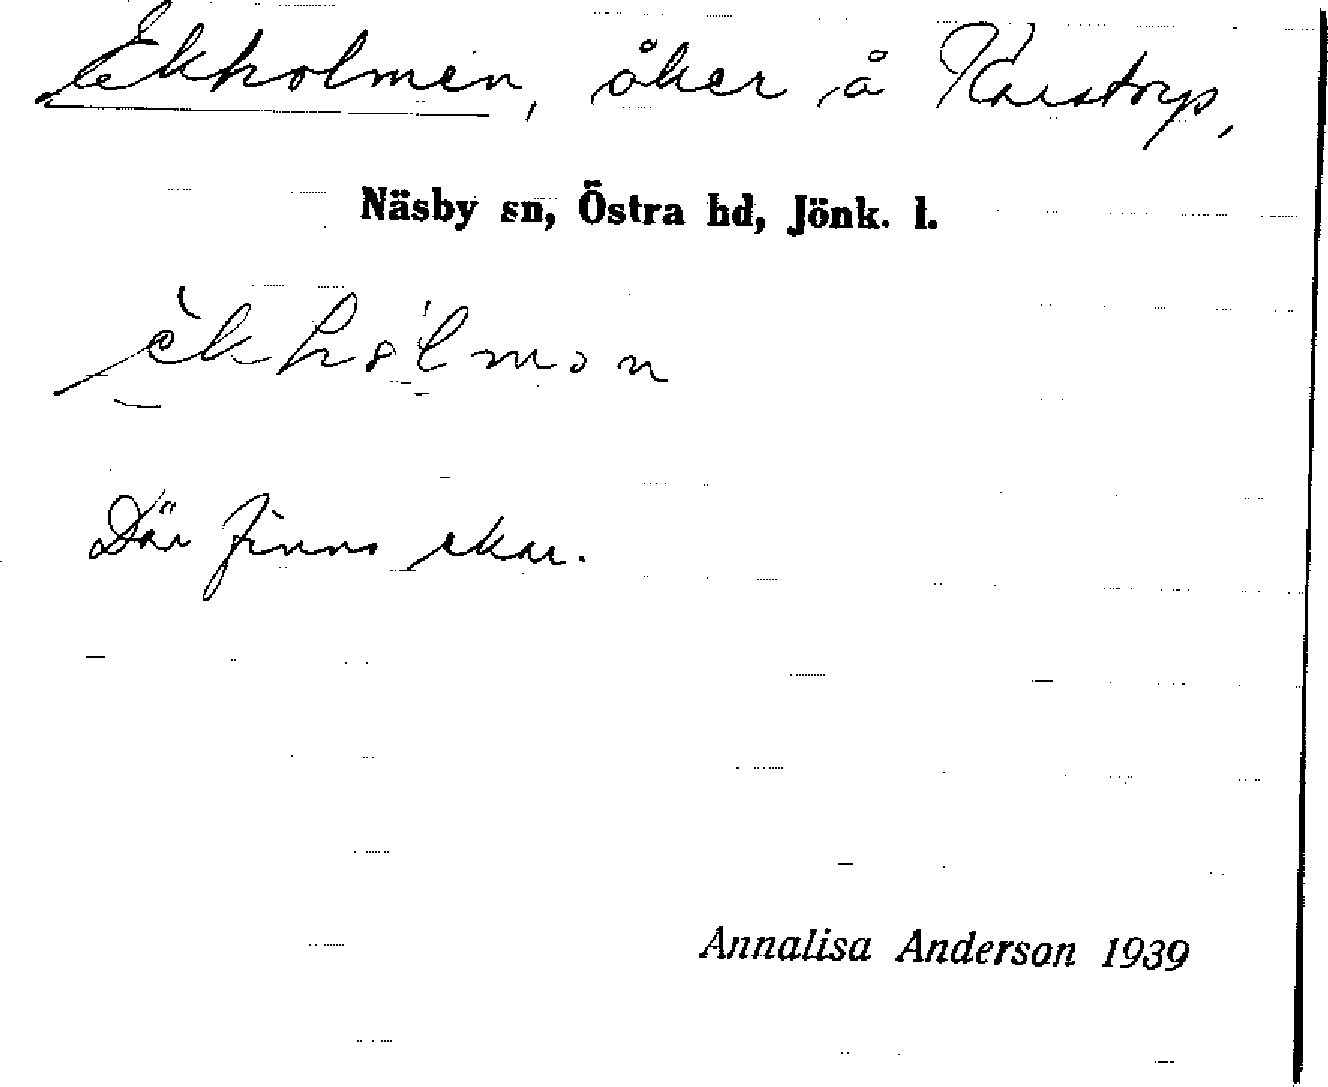 Ekholmen, åker å Karstorp,
Näsby sn, Östra hd, Jönk. l.
Där finns ekar.
Annalisa Anderson 1939